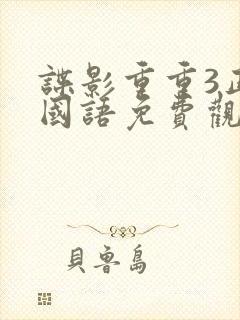 諜影重重3正
國語免費觀
貝魯島